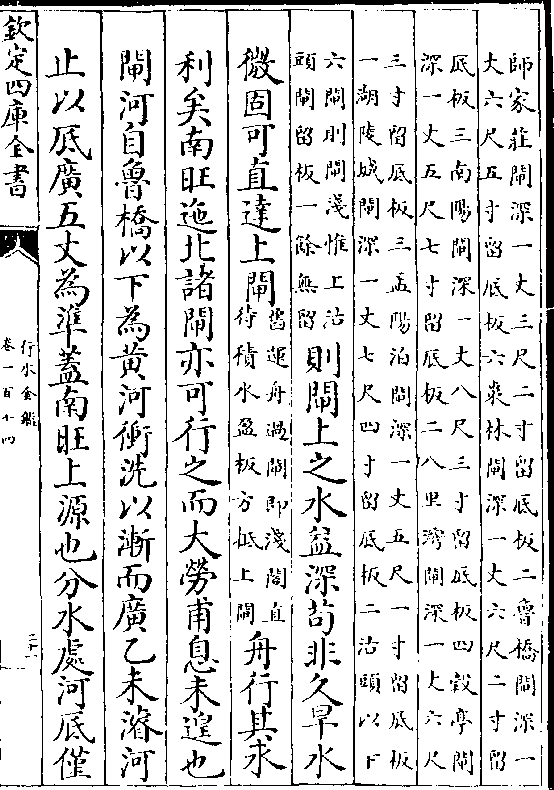 師家莊閘深一丈三尺二寸留底板二魯橋閘深一
丈六尺五寸留底板六棗林閘深一丈六尺二寸留
底板三南陽閘深一丈八尺三寸留底板四穀亭閘
深一丈五尺七寸留底板二八里灣閘深一丈六尺
三寸留底板三孟陽泊閘深一丈五尺一寸留底板
一湖陵城閘深一丈七尺四寸留底板二沽頭以下
六閘則閘淺惟上沽
頭閘留板一餘無留
則閘上之水益深苟非久旱水
微固可直達上閘
舊運舟過閘即淺閣直
待積水盈板方抵上閘
舟行其永
利矣南旺迤北諸閘亦可行之而大勞甫息未遑也
閘河自魯橋以下為黄河衝洗以漸而廣乙未濬河
止以底廣五丈為準蓋南旺上源也分水處河底僅
欽定四庫全書
行水金鑑
卷一百十四